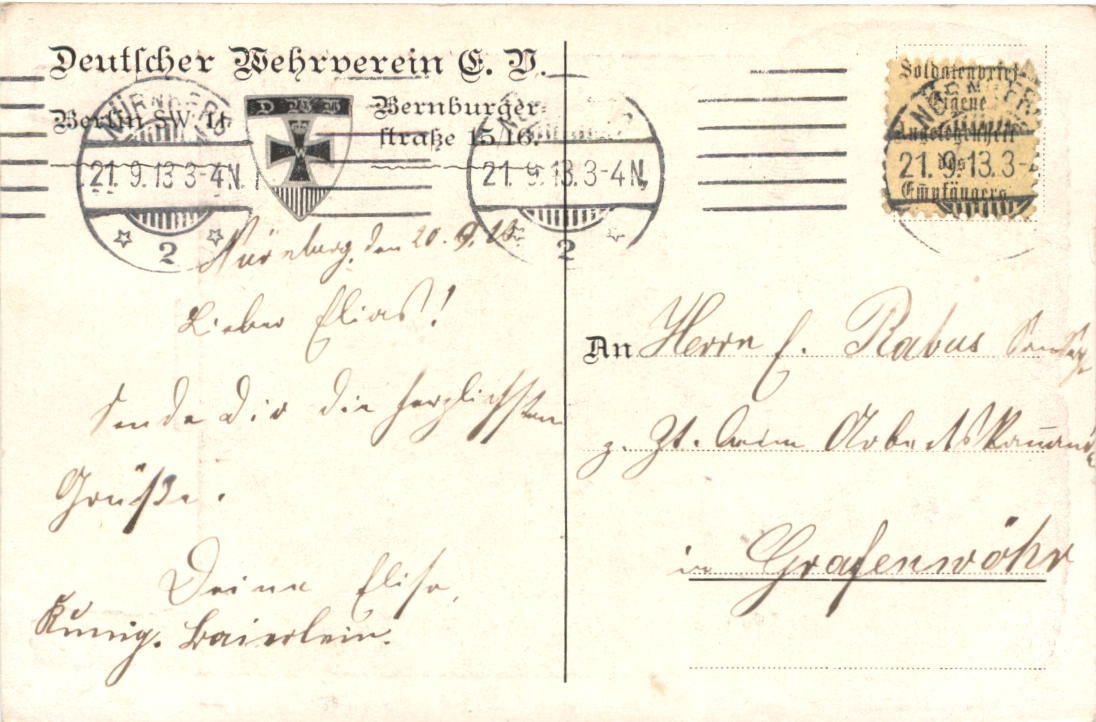 Deutscher Wehrverein E. V.
Berlin SW 11
D W V
Bernburger-
straße 15/16.
NÜRNBERG
21. 9. 13 3-4 N.
2
21. 9. 13. 3-4 N.
2
Soldatenbrief
Eigene
Angelegenheit
des
Empfängers
NÜRNBERG
21. 9. 13. 3-4
Nürnberg, den 20. 9. 13.
Lieber Elias!
sende Dir die herzlichsten
Grüße.
Deine Elise,
Kunig. Baierlein.
An Herrn E. Rabus
z. Zt. beim Arbeitskomando
in Grafenwöhr